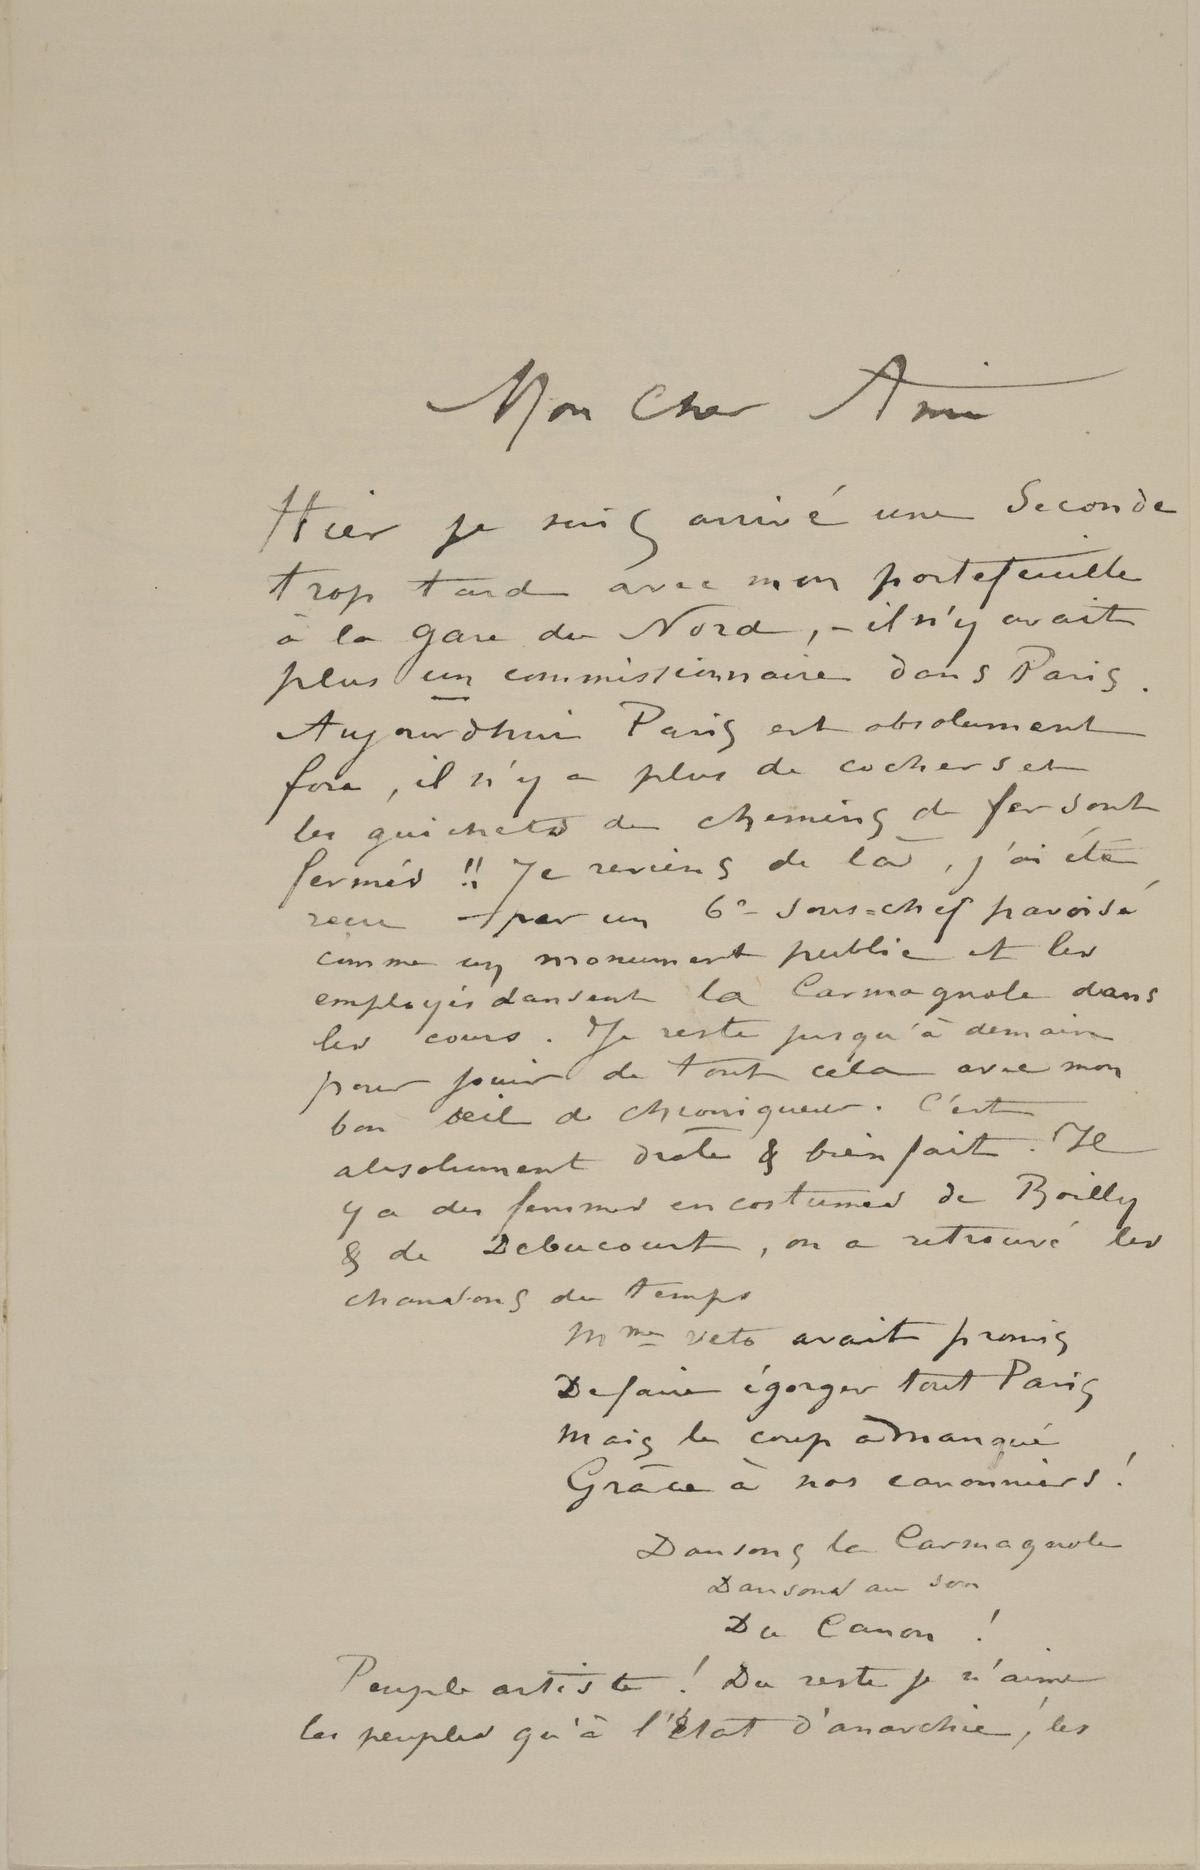 Mon Cher Ami
Hier je suis arrivé une Seconde
trop tard avec mon portefeuille
à la gare du Nord, – il n'y avait
plus un commissionnaire dans Paris.
Aujourdhui Paris est absolument
fou, il n'y a plus de cochers et
les guichets de chemins de fer sont
fermés !! Je reviens de là, j'ai été
reçu – par un 6e sous-chef pavoisé
comme un monument public et les
employés dansent la Carmagnole dans
les cours. Je reste jusqu'à demain
pour jouir de tout cela avec mon
bon œil de chroniqueur. C'est
absolument drôle & bien fait. Il
y a des femmes en costumes de Boilly
& de Debucourt, on a retrouvé les
chansons du temps
Mme veto avait promis
De faire égorger tout Paris
Mais le coup a manqué
Grâce à nos canonniers !
Dansons la Carmagnole
Dansons au son
Du Canon !
Peuple artiste ! Du reste je n'aime
les peuples qu'à l'État d'anarchie, les